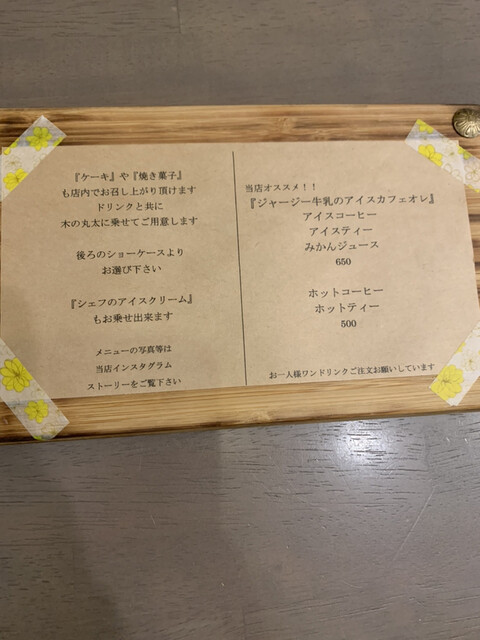 『ケーキ』や『焼き菓子』
も店内でお召し上がり頂けます
ドリンクと共に
木の丸太に乗せてご用意します
後ろのショーケースより
お選び下さい
『シェフのアイスクリーム』
もお乗せ出来ます
メニューの写真等は
当店インスタグラム
ストーリーをご覧下さい
当店オススメ！！
『ジャージー牛乳のアイスカフェオレ』
アイスコーヒー
アイスティー
みかんジュース
650
ホットコーヒー
ホットティー
500
お一人様ワンドリンクご注文お願いしています